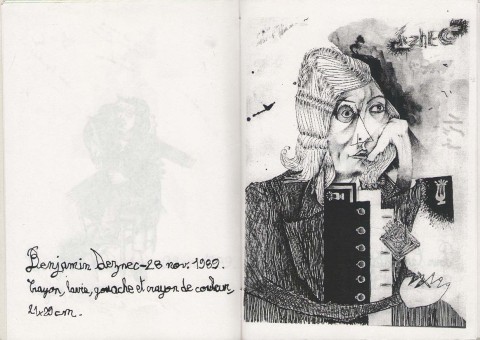 Benjamin Deznec - 28 nov. 1989.
Crayon, lavis, gouache et crayon de couleur,
21x29 cm.